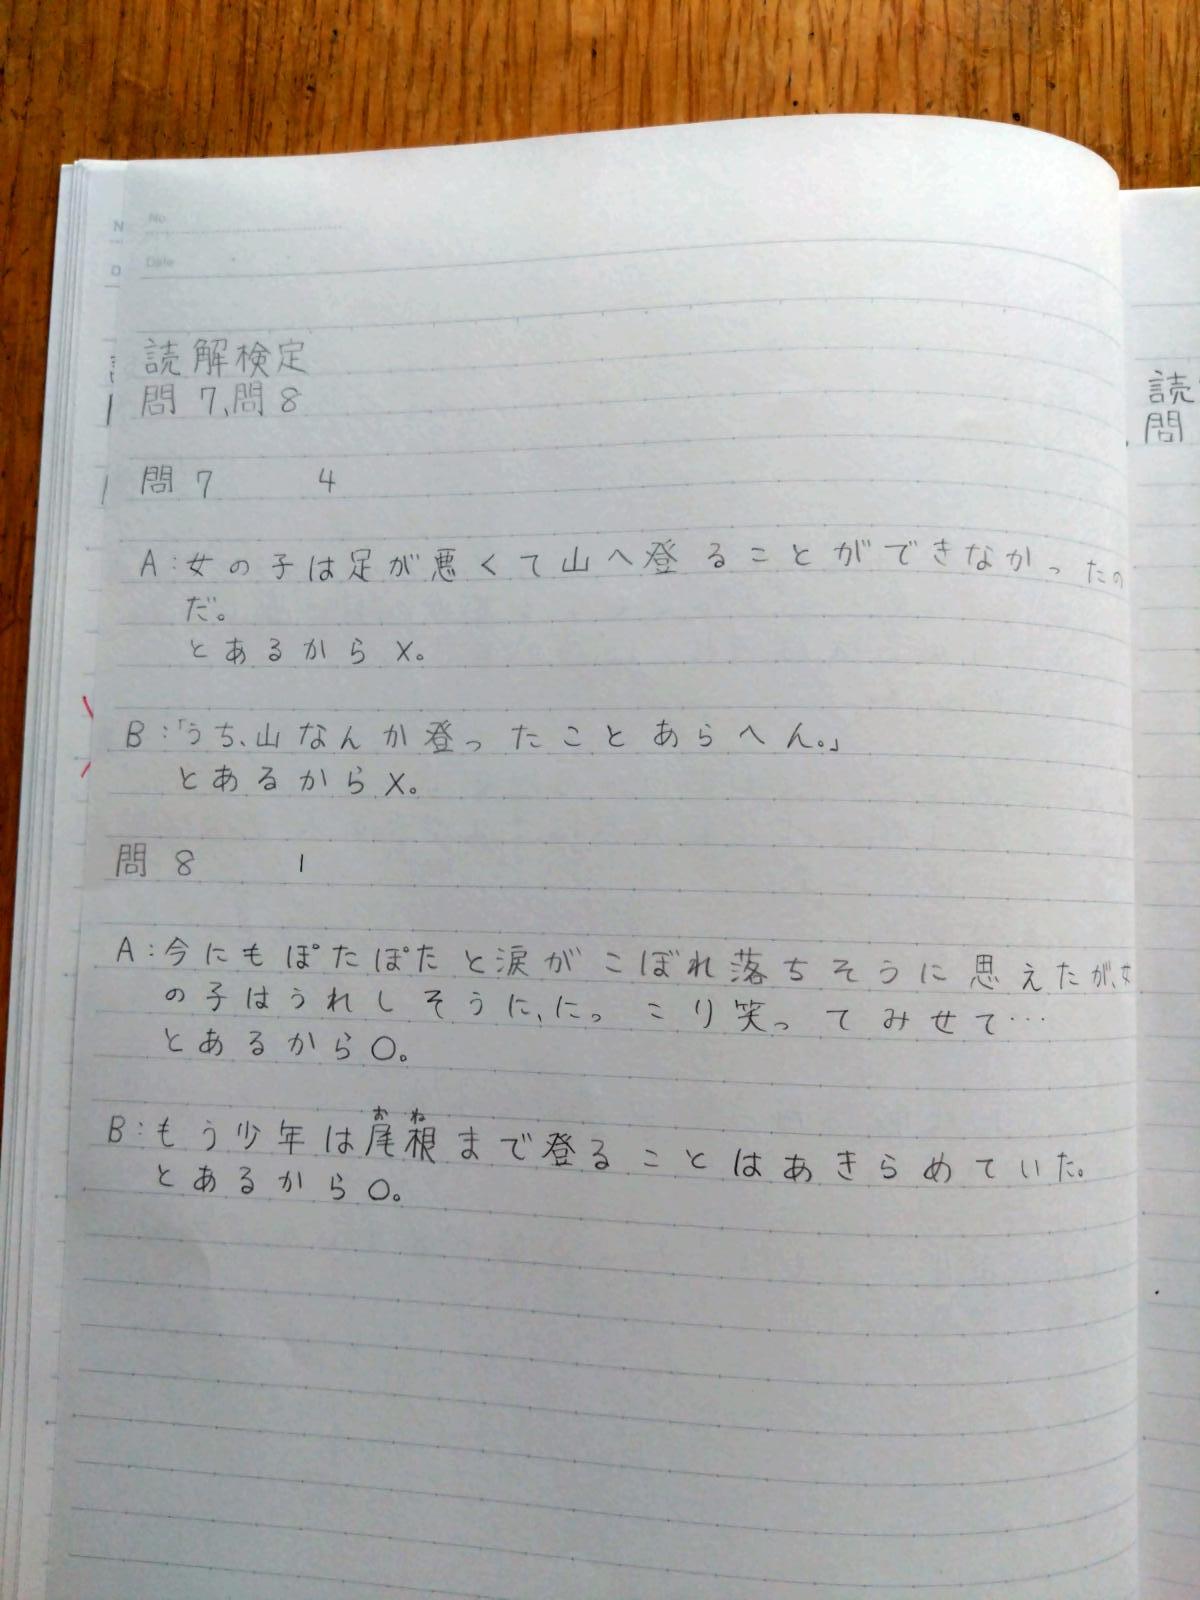 No
Date
読解検定
問7、問8
問7 4
A:女の子は足が悪くて山へ登ることができなかったの
だ。
とあるから×。
B:「うち、山なんか登ったことあらへん。」
とあるから×。
問8 1
A:今にもぽたぽたと涙がこぼれ落ちそうに思えたが、女
の子はうれしそうに、にっこり笑ってみせて…
とあるから○。
おね
B:もう少年は尾根まで登ることはあきらめていた。
とあるから○。
N
D
読
問